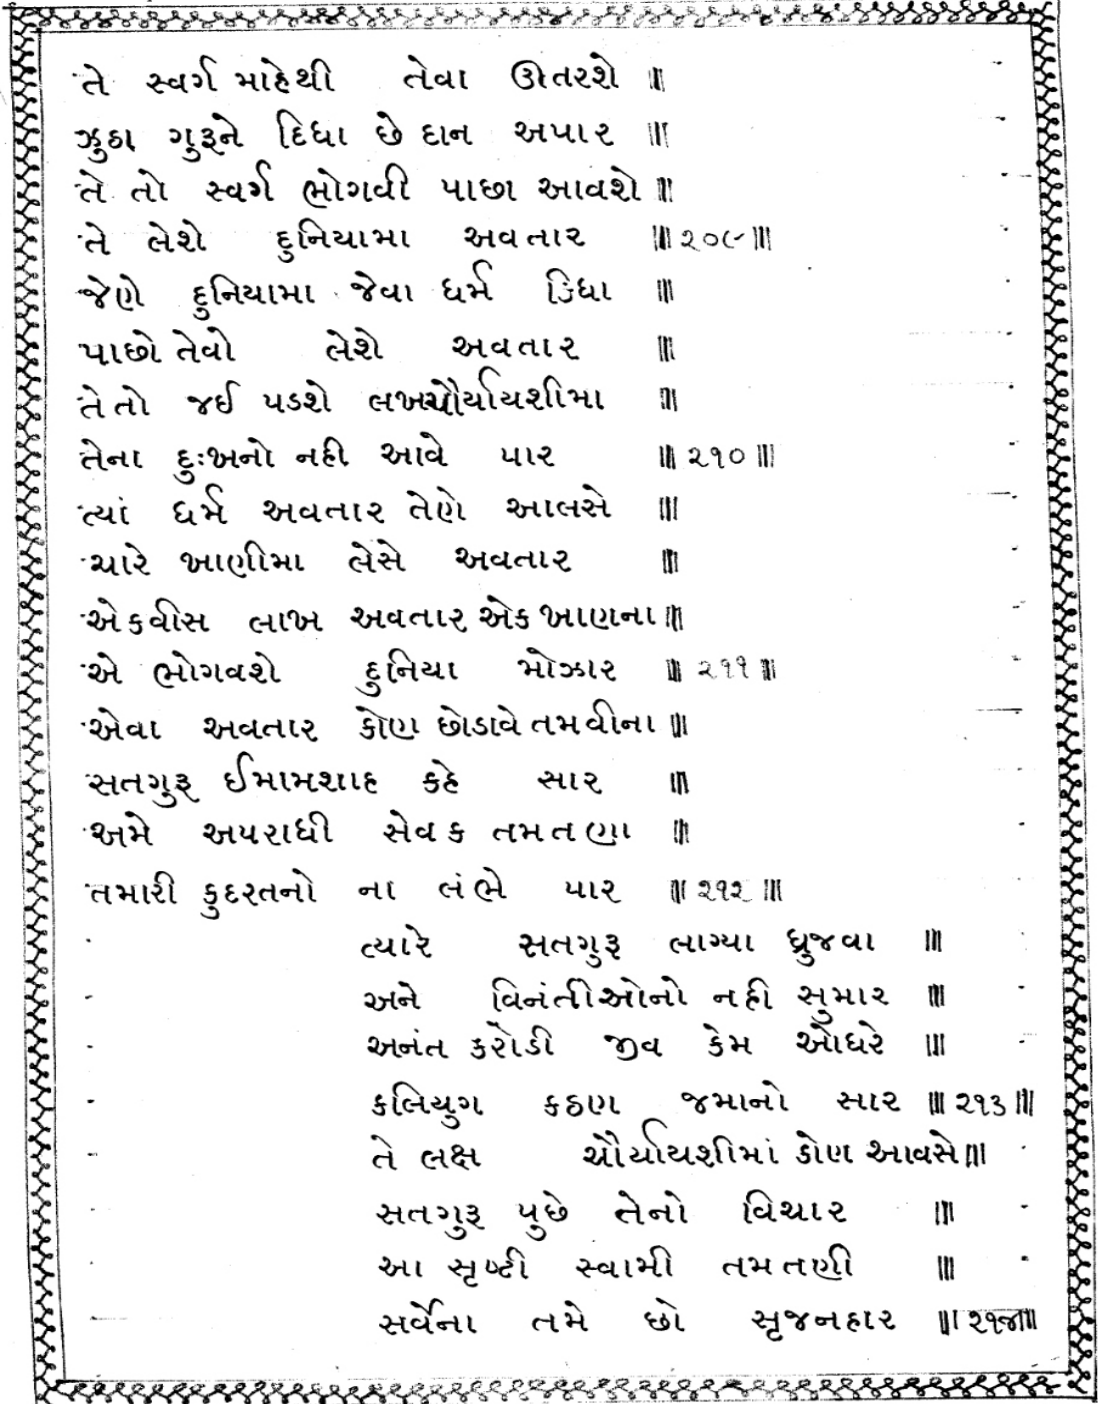 તે સ્વર્ગ માહેથી તેવા ઊતરશે ॥
ઝુઠા ગુરૂને દિધા છે દાન અપાર ॥
તે તો સ્વર્ગ ભોગવી પાછા આવશે ॥
તે લેશે દુનિયામા અવતાર ॥ ૨૦૯ ॥
જેણે દુનિયામા જેવા ધર્મ કિધા ॥
પાછો તેવો લેશે અવતાર ॥
તેતો જઈ પડશે લખચૌર્યાયશીમા ॥
તેના દુઃખનો નહી આવે પાર ॥ ૨૧૦ ॥
ત્યાં ધર્મ અવતાર તેણે આલસે ॥
ચારે ખાણીમા લેસે અવતાર ॥
એકવીસ લાખ અવતાર એક ખાણના ॥
એ ભોગવશે દુનિયા મોઝાર ॥ ૨૧૧ ॥
એવા અવતાર કોણ છોડાવે તમવીના ॥
સતગુરૂ ઈમામશાહ કહે સાર ॥
અમે અપરાધી સેવક તમતણા ॥
તમારી કુદરતનો ના લંભે પાર ॥ ૨૧૨ ॥
ત્યારે સતગુરૂ લાગ્યા ધ્રુજવા ॥
અને વિનંતીઓનો નહી સુમાર ॥
અનંત કરોડી જીવ કેમ ઓધરે ॥
કલિયુગ કઠણ જમાનો સાર ॥ ૨૧૩ ॥
તે લક્ષ ચૌર્યાયશીમાં કોણ આવસે ॥
સતગુરૂ પુછે તેનો વિચાર ॥
આ સૃષ્ટી સ્વામી તમતણી ॥
સર્વેના તમે છો સૃજનહાર ॥ ૨૧૪ ॥